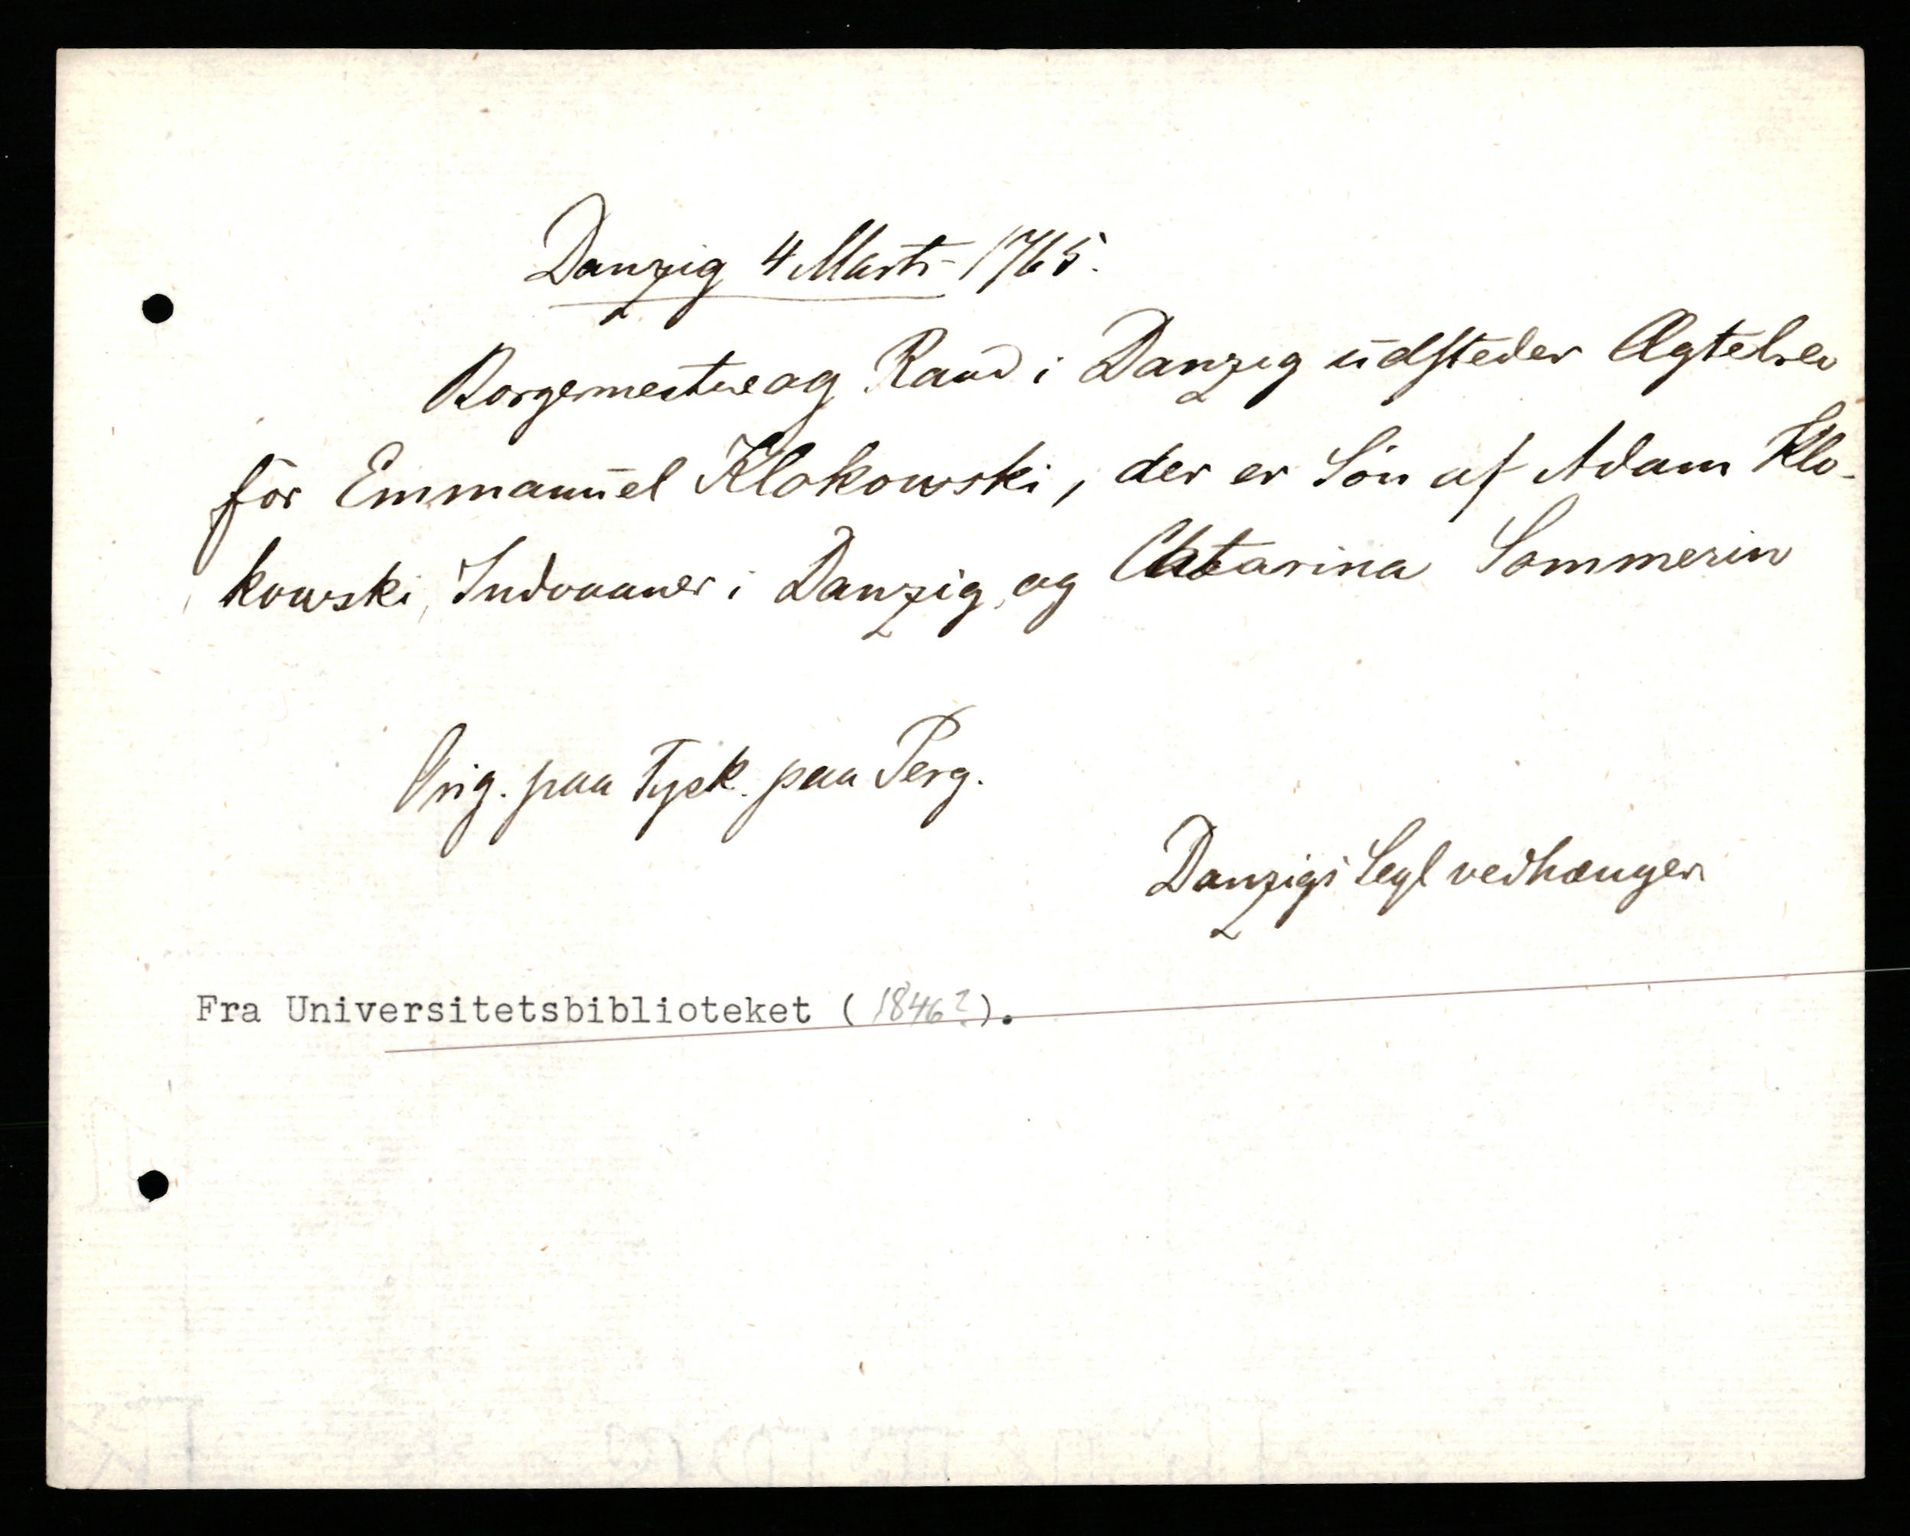 Danzig 4 Marts 1765.
Borgermestre og Raad i Danzig udsteder Ægtebrev
for Emmanuel Klokowski, der er Søn af Adam Klo-
kowski, Indvaaner i Danzig, og Catarina Sommerin
Orig. paa Tysk. paa Perg.
Danzigs Segl vedhænger
Fra Universitetsbiblioteket (1846?).